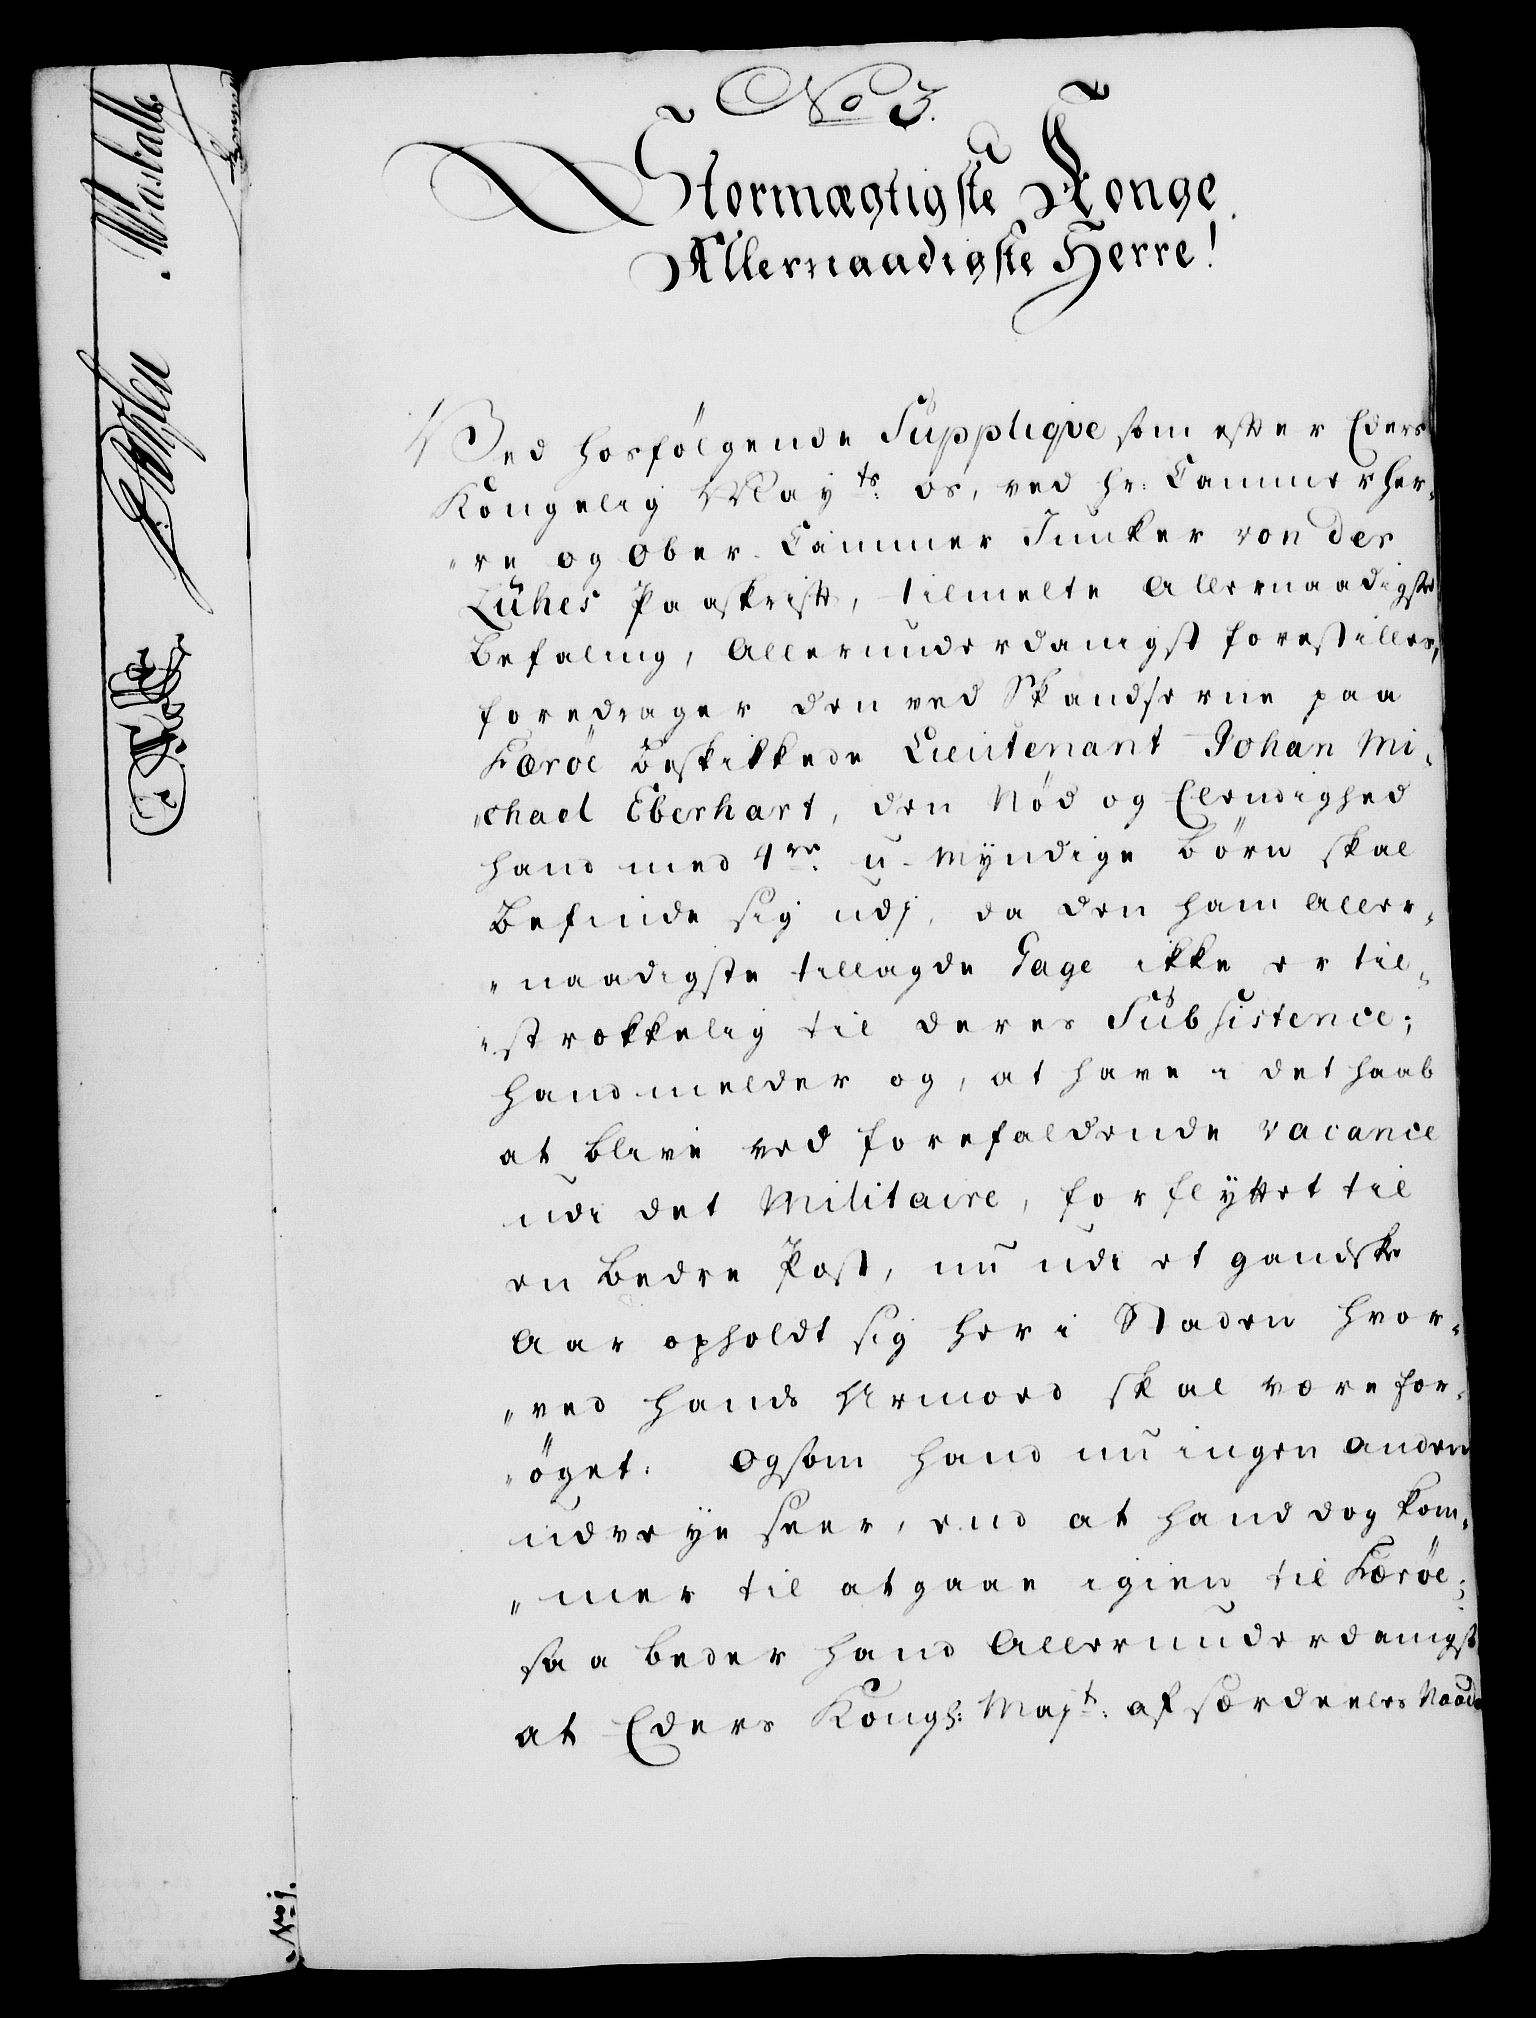 No 3.
Stormægtigste Konge
Allernaadigste Herre!
Ved hosfölgende Supplique som efter Eders
Kongelig Mayts: os, ved hr: Cammerher¬
„re og Ober-Cammer Junker von der
Lühes Paaskrift, tilmelte Allernaadigste
Befaling, Allerunderdanigst forestilles,
foredrager den ved Skandserne paa
Færöe Beskikkede Lieutenant Johan Mi¬
„chael Eberhart, den Nöd og Elendighed
hand med 4re: u-Myndige Börn skal
Befinde sig udj, da den ham Aller¬
„naadigste tillagde Gage ikke er til¬
„strækkelig til deres Subsistence;
hand melder og, at have i det haab
at blive ved forefaldende vacance
udi det Militaire, forflyttet til
en Bedre Post, nu udi et gandske
Aar opholdt sig her i Staden hvor¬
„ved hands Armoed skal være for¬
„öget. Og som hand nu ingen anden
udveye seer, end at hand dog kom¬
„mer til at gaae igien til Færöe;
saa beder hand Allerunderdanigst
at Eders Kongl: Majt: af særdeeles Naade
No 1.